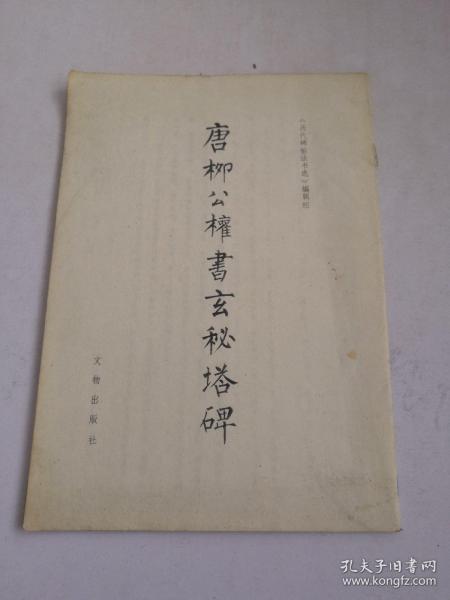 《历代碑帖法书选》编辑组
唐柳公權書玄秘塔碑
文物出版社
孔夫子旧书网
www.kongfz.com